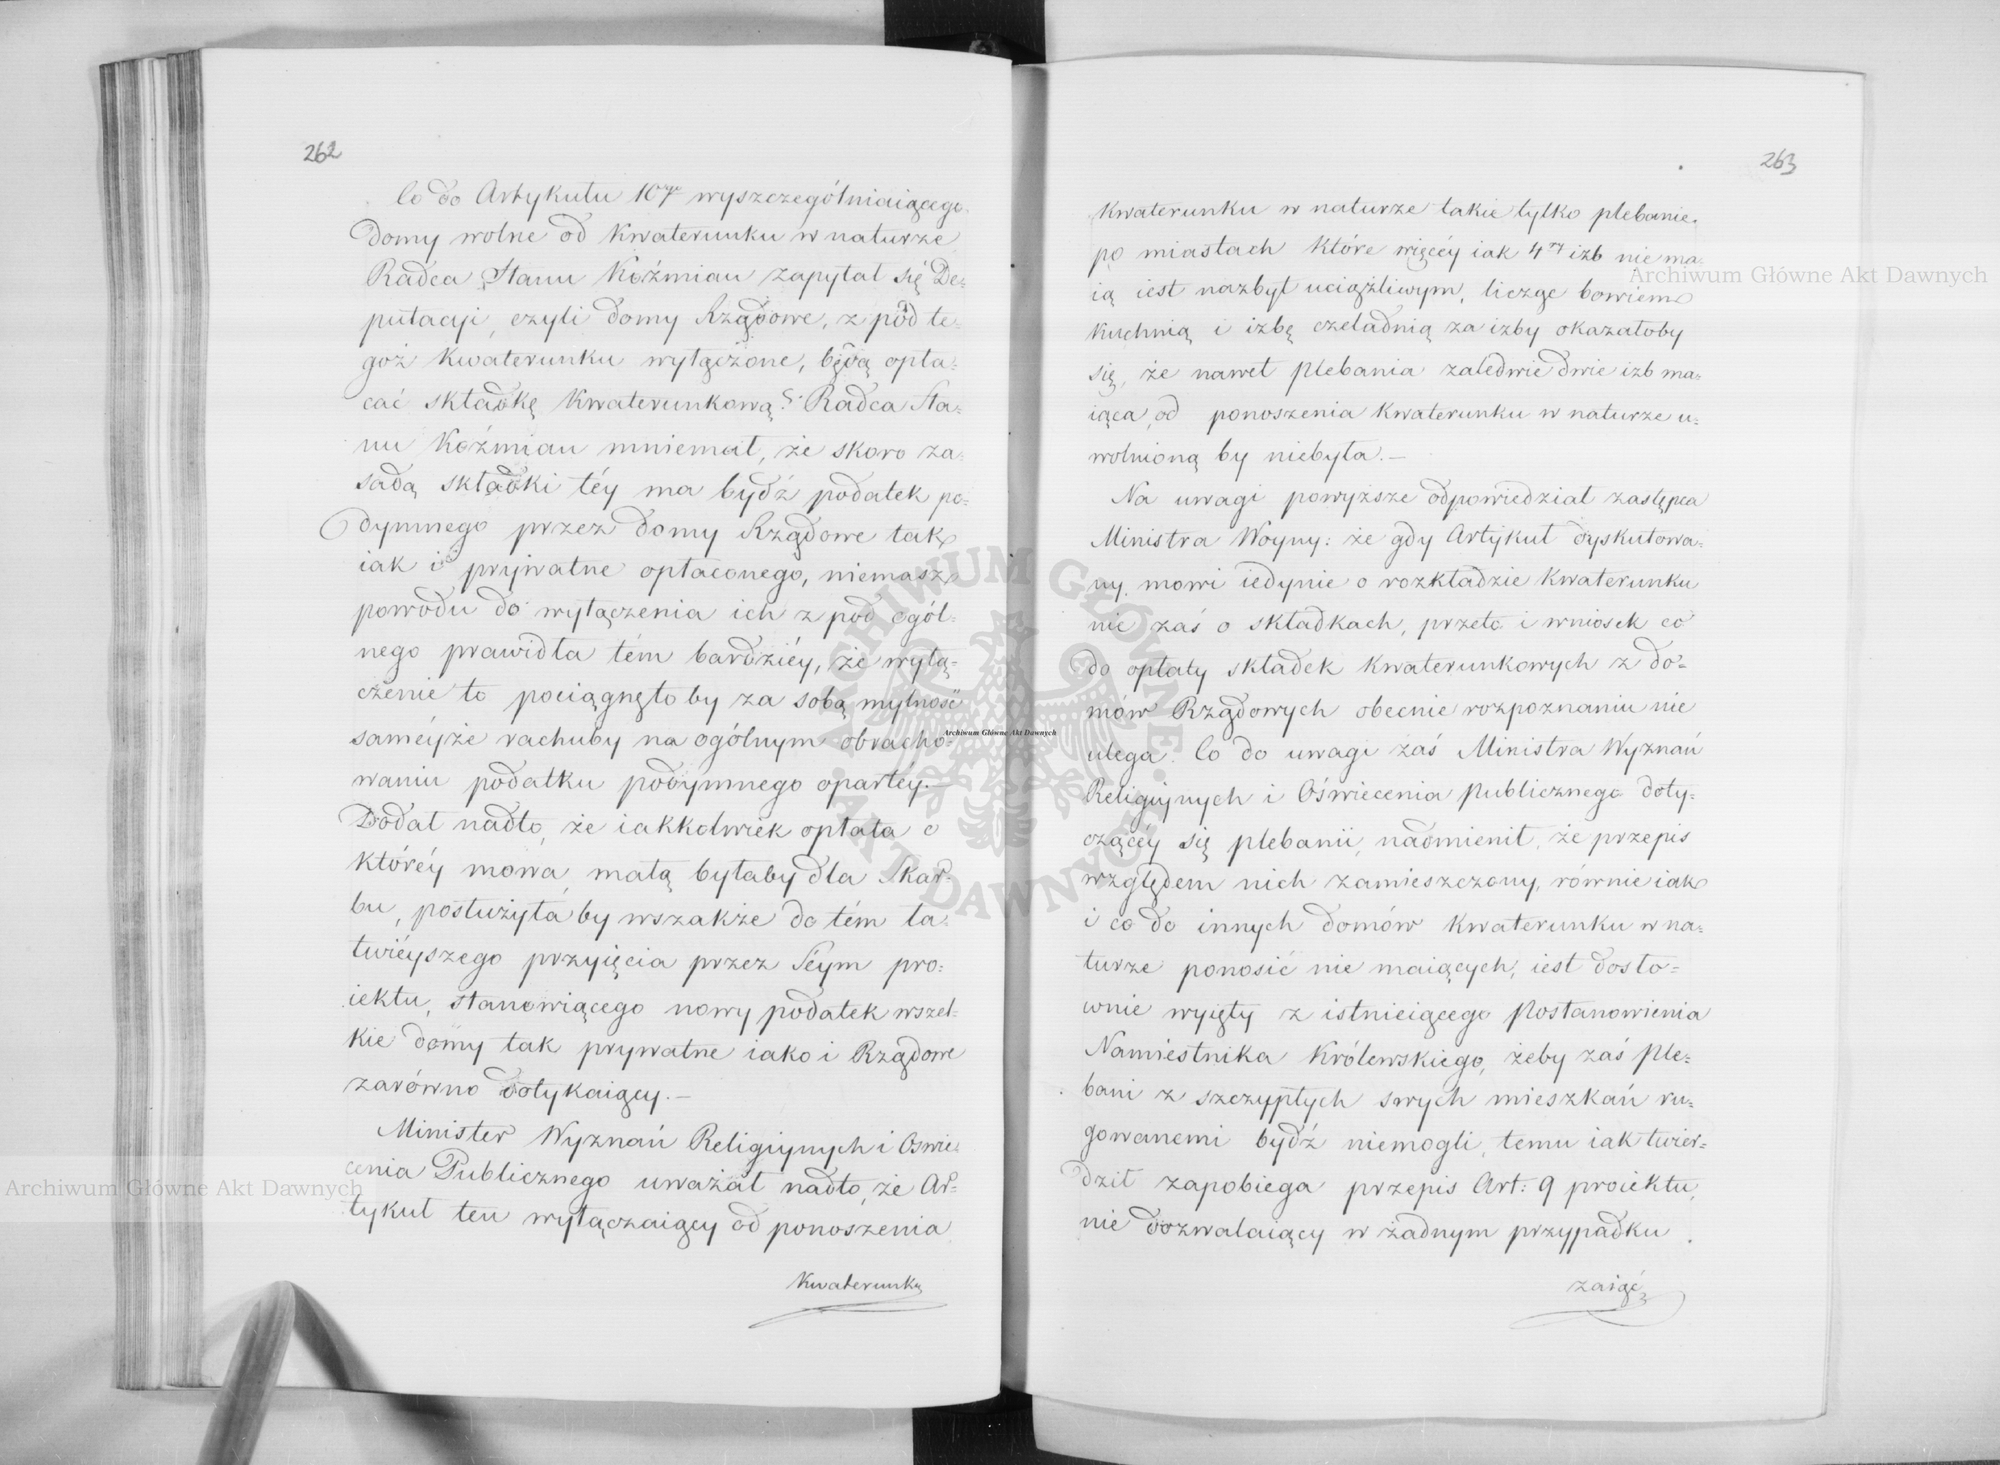 262
Co do Artykułu 10go wyszczególniaiącego
Domy wolne od Kwaterunku w naturze
Radca Stanu Koźmian zapytał się De-
putacyi, czyli domy Rządowe, z pod te-
goż Kwaterunku wyłączone, będą opła-
cać składkę Kwaterunkową? Radca Sta-
nu Koźmian mniemał, że skoro za-
sadą składki téy ma bydź podatek po-
dymnego przez domy Rządowe tak
iak i prywatne opłaconego, niemasz
powodu do wyłączenia ich z pod ogól-
nego prawidła tém bardziéy, że wyłą-
czenie to pociągnęłoby za sobą mylność
saméyże rachuby na ogólnym obracho-
waniu podatku podymnego opartéy.—
Dodał nadto, że iakkolwiek opłata o
któréy mowa, małą byłaby dla Skar-
bu, posłużyła by wszakże do tém ła-
twiéyszego przyięcia przez Séym pro-
iektu, stanowiącego nowy podatek wszel-
kie domy tak prywatne iako i Rządowe
zarówno dotykaiący.—
Minister Wyznań Religiynych i Oświe-
cenia Publicznego uważał nadto, że Ar-
tykuł ten wyłączaiący od ponoszenia
Kwaterunku
263
Kwaterunku w naturze takie tylko plebanie
po miastach które więcéy iak 4ry izb nie ma-
ią iest nazbyt uciążliwym, licząc bowiem
kuchnią i izbę czeladnią za izby okazałoby
się, że nawet plebania zaledwie dwie izb ma-
iąca, od ponoszenia Kwaterunku w naturze u-
wolnioną by niebyła.—
Na uwagi powyższe odpowiedział zastępca
Ministra Woyny: że gdy Artykuł dyskutowa-
ny mowi iedynie o rozkładzie Kwaterunku
nie zaś o składkach, przeto i wniosek co
do opłaty składek Kwaterunkowych z do-
mów Rządowych obecnie rozpoznaniu nie
ulega. Co do uwagi zaś Ministra Wyznań
Religiynych i Oświecenia Publicznego doty-
czącéy się plebanii, nadmienił, że przepis
względem nich zamieszczony, równie iak
i co do innych domów Kwaterunku w na-
turze ponosić nie maiących, iest dosło-
wnie wyięty z istnieiącego Postanowienia
Namiestnika Królewskiego, żeby zaś Ple-
bani z szczypłych swych mieszkań ru-
gowanemi bydź niemogli, temu iak twier-
dził zapobiega przepis Art: 9 proiektu,
nie dozwalaiący w żadnym przypadku
zaiąć
Archiwum Główne Akt Dawnych
Archiwum Główne Akt Dawnych
Archiwum Główne Akt Dawnych
ARCHIWUM GŁÓWNE AKT DAWNYCH